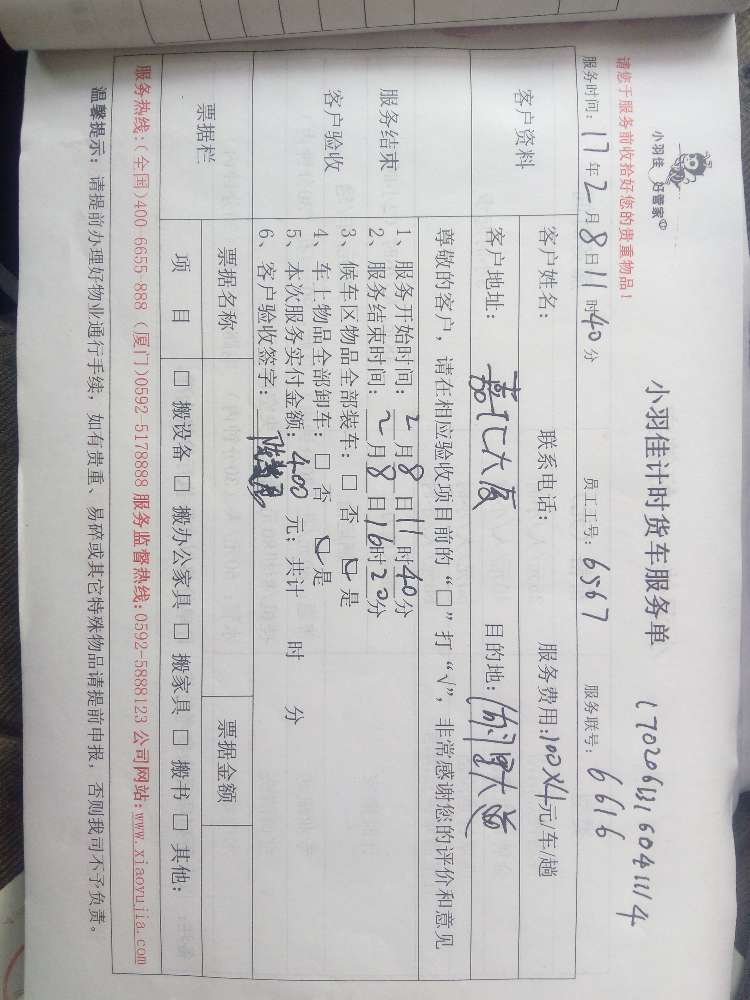 小羽佳 好管家
小羽佳计时货车服务单
请您于服务前收拾好您的贵重物品!
服务时间: 17 年 2 月 8 日 11 时 40 分 员工工号: 6567 服务联号: 6616
客户资料
客户姓名: 联系电话: 服务费用: 100×4 元/车/趟
客户地址: 大厦 目的地: 大道
服务结束
客户验收
尊敬的客户,请在相应验收项目前的“□”打“√”,非常感谢您的评价和意见
1、服务开始时间: 2 月 8 日 11 时 40 分
2、服务结束时间: 2 月 8 日 16 时 20 分
3、候车区物品全部装车: □ 否 ☑ 是
4、车上物品全部卸车: □ 否 ☑ 是
5、本次服务实付金额: 400 元; 共计 时 分
6、客户验收签字:
票据栏
票据名称 票据金额
项 目 □ 搬设备 □ 搬办公家具 □ 搬家具 □ 搬书 □ 其他:
服务热线:(全国)400-6655-888 (厦门)0592-5178888 服务监督热线:0592-5888123 公司网站:www.xiaoyujia.com
温馨提示: 请提前办理好物业通行手续, 如有贵重、易碎或其它特殊物品请提前申报, 否则我司不予负责。